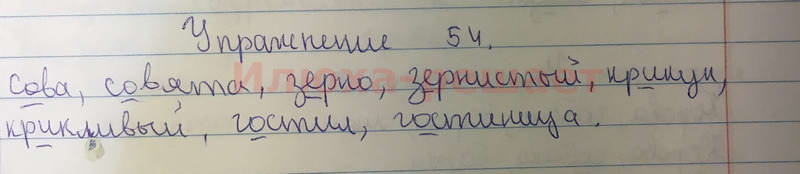 Упражнение 54.
сова, совята, зерно, зернистый, крикун,
крикливый, гостил, гостиница.